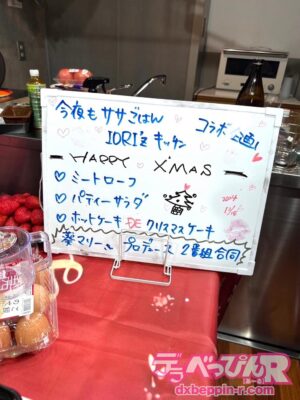 今夜もササごはん
コラボ企画！
IORI'z キッチン
HAPPY X'MAS
♡ ミートローフ
♡ パティーサラダ
♡ ホットケーキ DE クリスマスケーキ
葵マリー プロデュース 2番組合同
2014
デラべっぴんR
dxbeppin-r.com